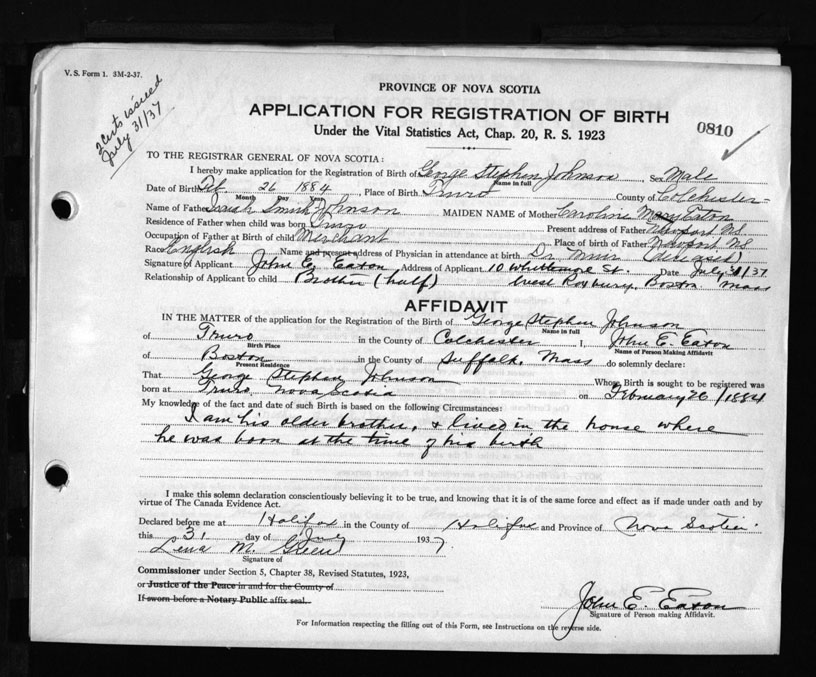 V. S. Form 1. 3M-2-37.
2 Certs issued
July 31/37
PROVINCE OF NOVA SCOTIA
APPLICATION FOR REGISTRATION OF BIRTH
0810
Under the Vital Statistics Act, Chap. 20, R. S. 1923
TO THE REGISTRAR GENERAL OF NOVA SCOTIA:
I hereby make application for the Registration of Birth of George Stephen Johnson Sex Male
Name in full
Date of Birth Feb. 26 1884, Place of Birth Truro County of Colchester
Month Day Year
Name of Father Isaiah Smith Johnson MAIDEN NAME of Mother Caroline Mary Eaton
Residence of Father when child was born Truro Present address of Father Newport N.S.
Occupation of Father at Birth of child Merchant Place of birth of Father Newport N.S.
Race English Name and present address of Physician in attendance at birth Dr. (deceased)
Signature of Applicant John E. Eaton, Address of Applicant 10 St. Date July 31/37
Relationship of Applicant to child Brother (half) West Roxbury, Boston Mass
AFFIDAVIT
IN THE MATTER of the application for the Registration of the Birth of George Stephen Johnson
Name in full
of Truro in the County of Colchester I, John E. Eaton
Birth Place Name of Person Making Affidavit
of Boston in the County of Suffolk, Mass do solemnly declare:
Present Residence
That George Stephen Johnson Whose Birth is sought to be registered was
born at Truro, Nova Scotia on February 26/1884
My knowledge of the fact and date of such Birth is based on the following Circumstances:
I am his older brother, & lived in the house where
he was born at the time of his birth
I make this solemn declaration conscientiously believing it to be true, and knowing that it is of the same force and effect as if made under oath and by
virtue of The Canada Evidence Act.
Declared before me at Halifax in the County of Halifax and Province of Nova Scotia
this 31 day of July 1937
Lena M. Green
Signature of
Commissioner under Section 5, Chapter 38, Revised Statutes, 1923,
or Justice of the Peace in and for the County of
If sworn before a Notary Public affix seal.
John E. Eaton
Signature of Person making Affidavit.
For Information respecting the filling out of this Form, see Instructions on the reverse side.